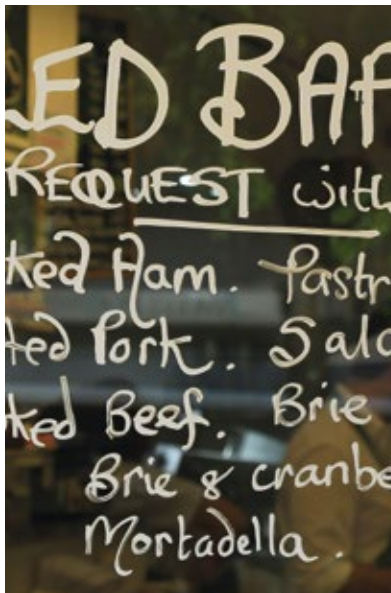 LED BAF
REQUEST with
ked Ham. Pastr
ted Pork. Sala
ked Beef. Brie
Brie & cranbe
Mortadella.